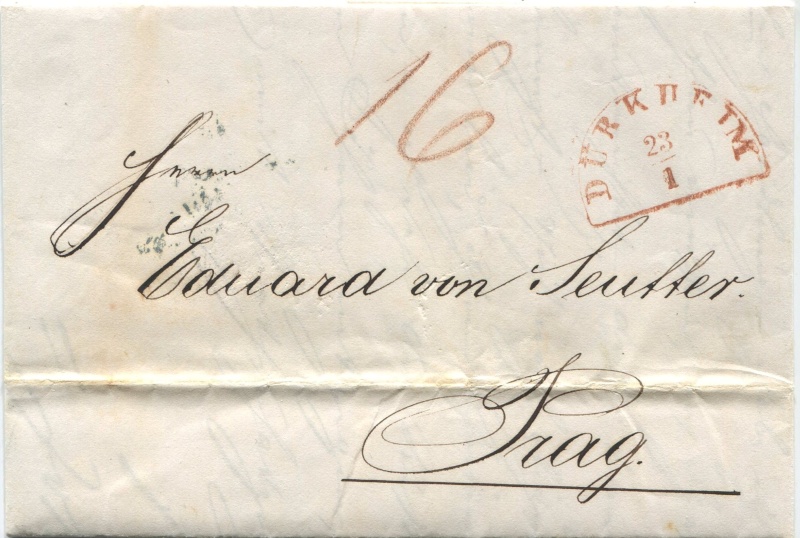 16
DÜRKHEIM
23
1
Herrn
Eduard von Seutter.
Prag.